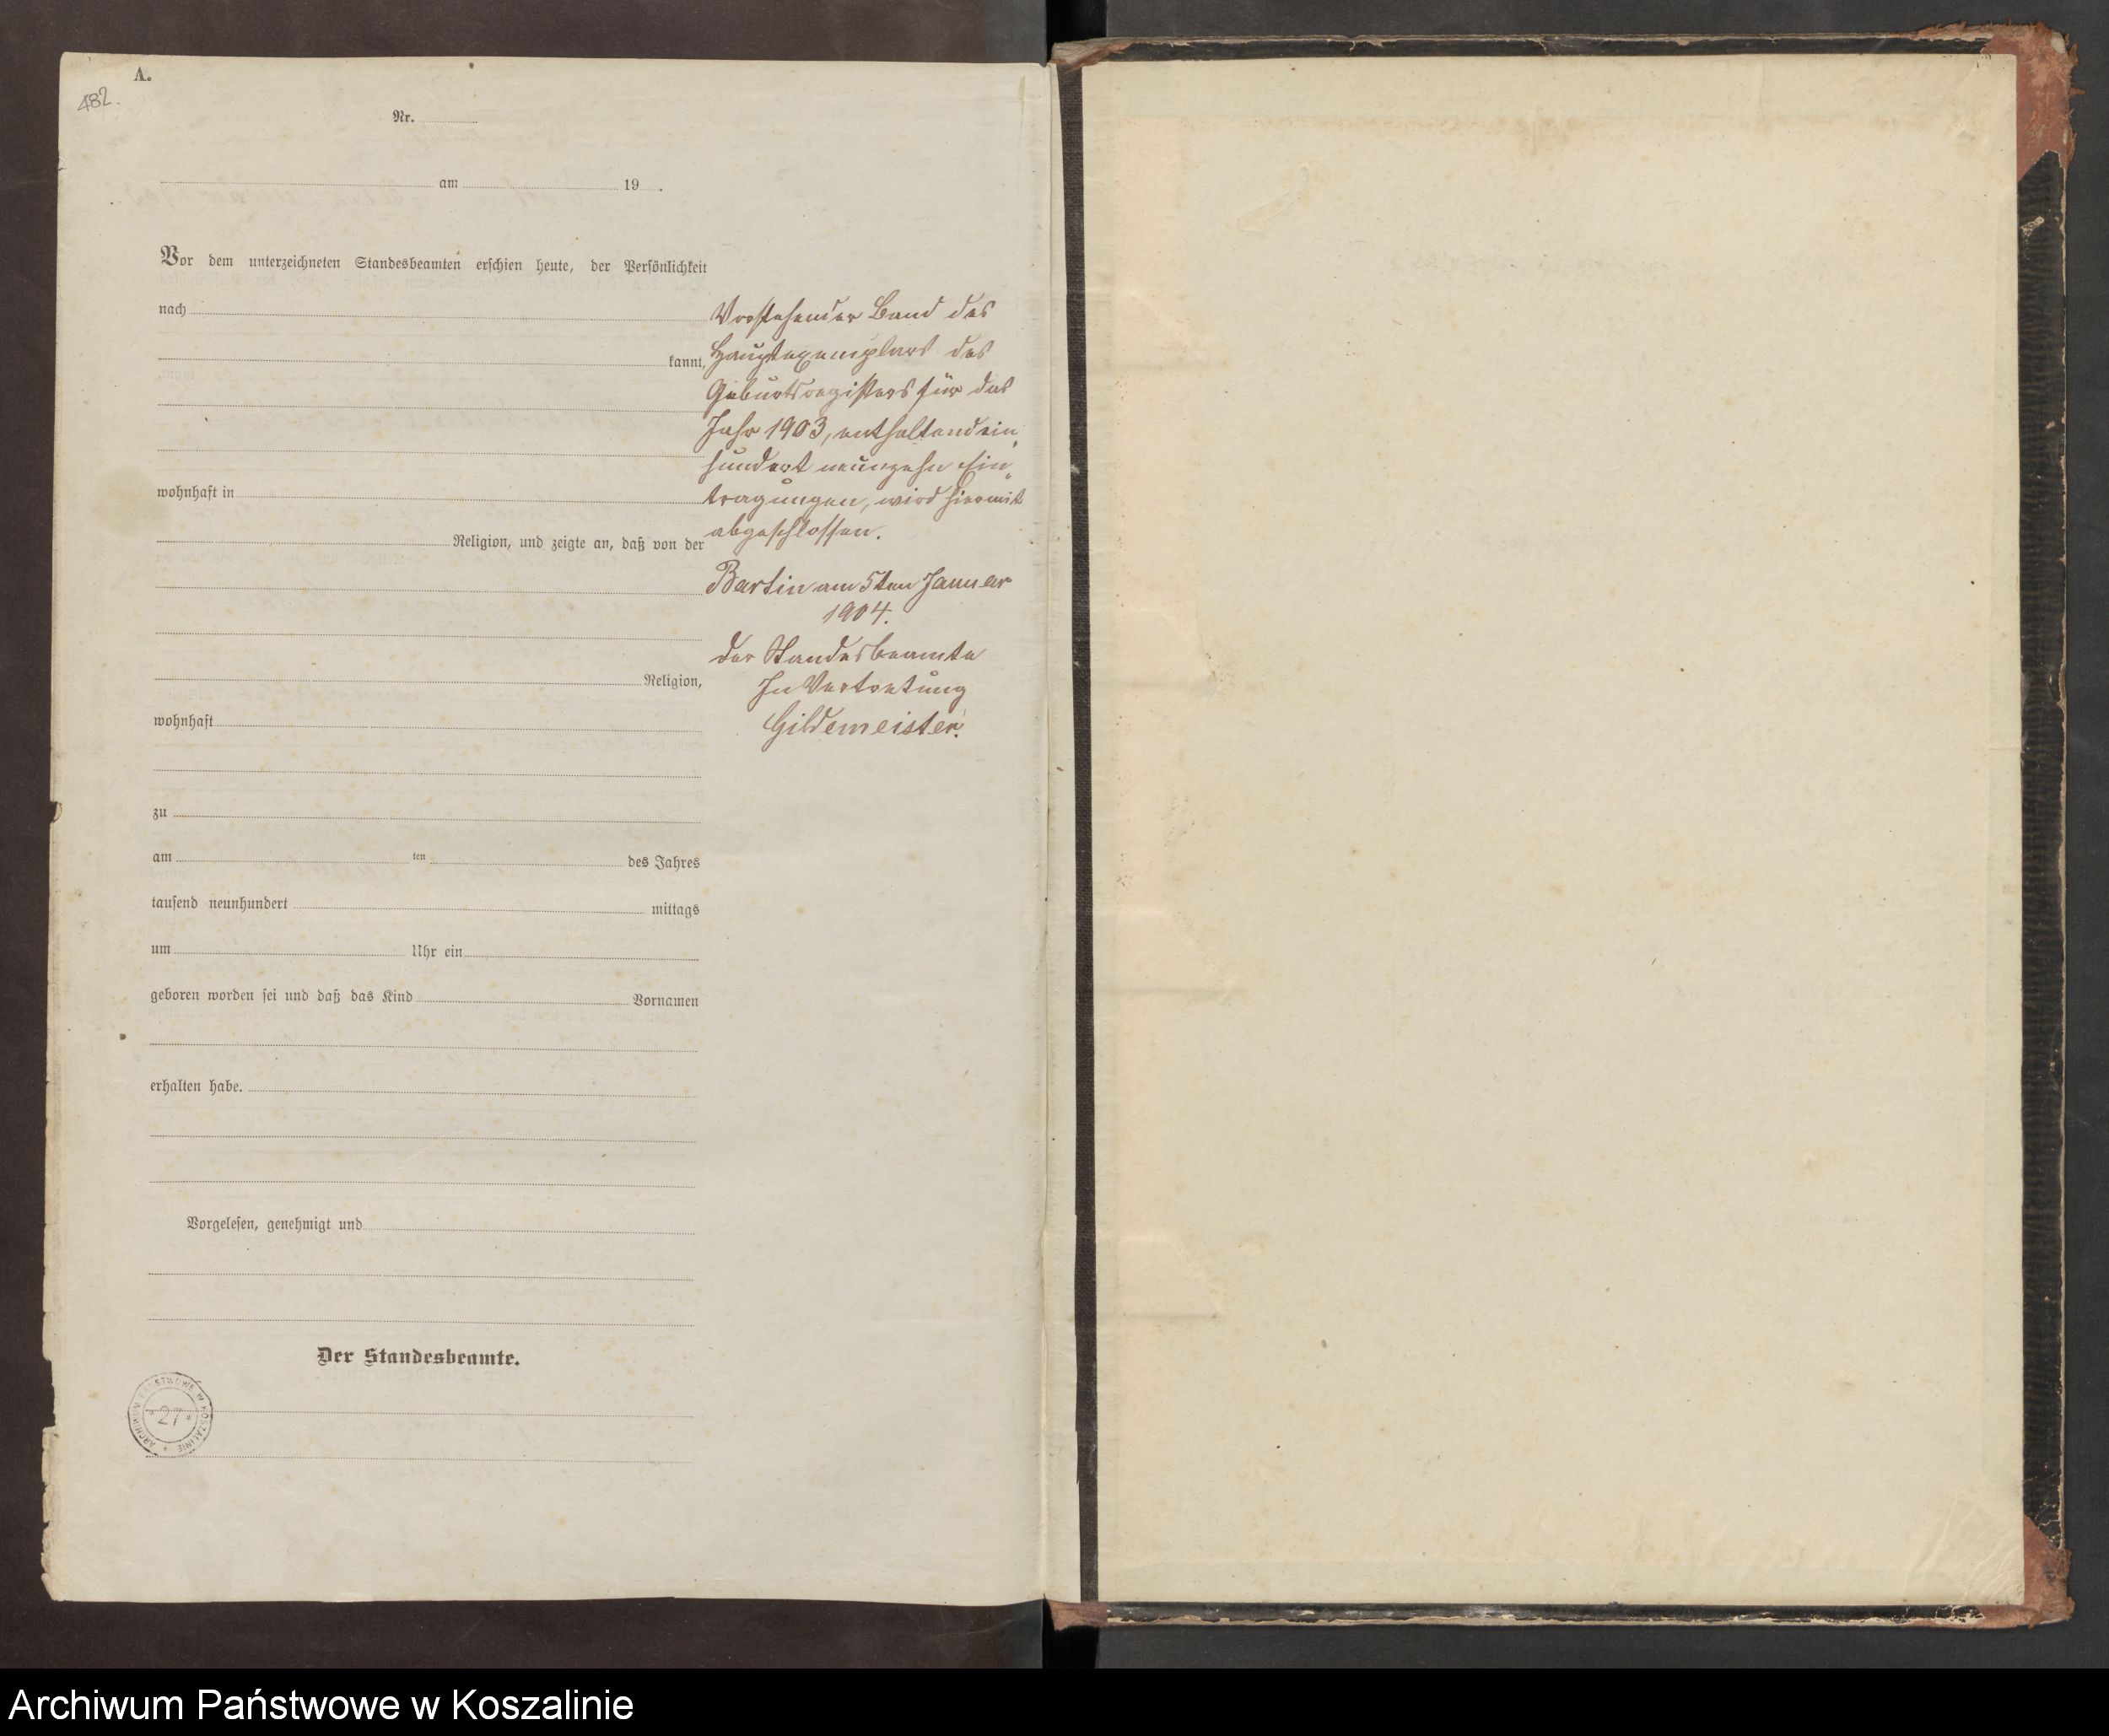 A.
482.
Nr.
am 19 .
Vor dem unterzeichneten Standesbeamten erschien heute, der Persönlichkeit
nach
kannt,
wohnhaft in
Religion, und zeigte an, daß von der
Religion,
wohnhaft
zu
am ten des Jahres
tausend neunhundert mittags
um Uhr ein
geboren worden sei und daß das Kind Vornamen
erhalten habe.
Vorgelesen, genehmigt und
Der Standesbeamte.
Vorstehender Band des
Hauptexemplars des
Geburtsregisters für das
Jahr 1903, enthaltend ein„
hundert neunzehn Ein„
tragungen, wird hiermit
abgeschlossen.
Bartin am 5ten Januar
1904.
Der Standesbeamte
In Vertretung
Gildemeister.
ARCHIWUM PAŃSTWOWE W KOSZALINIE
* 27 *
Archiwum Państwowe w Koszalinie